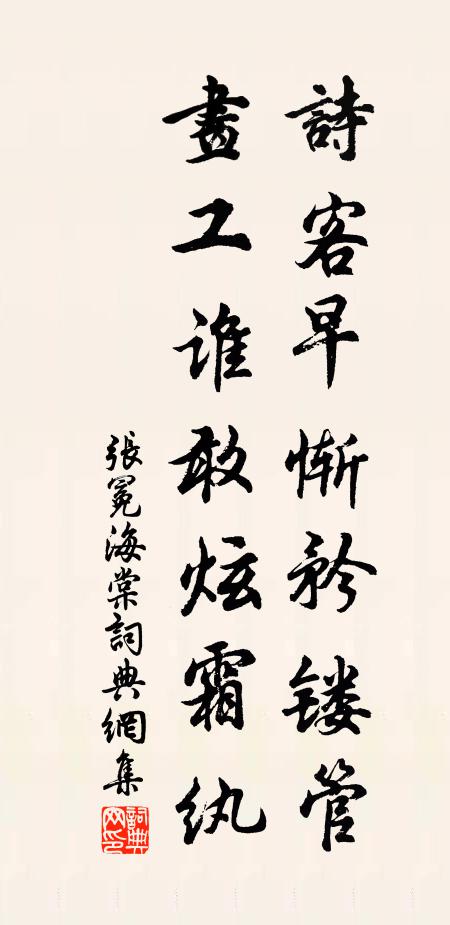 詩客早慚矜镂管
畫工誰敢炫霜纨
張冕海棠詞典網集
詞典網印